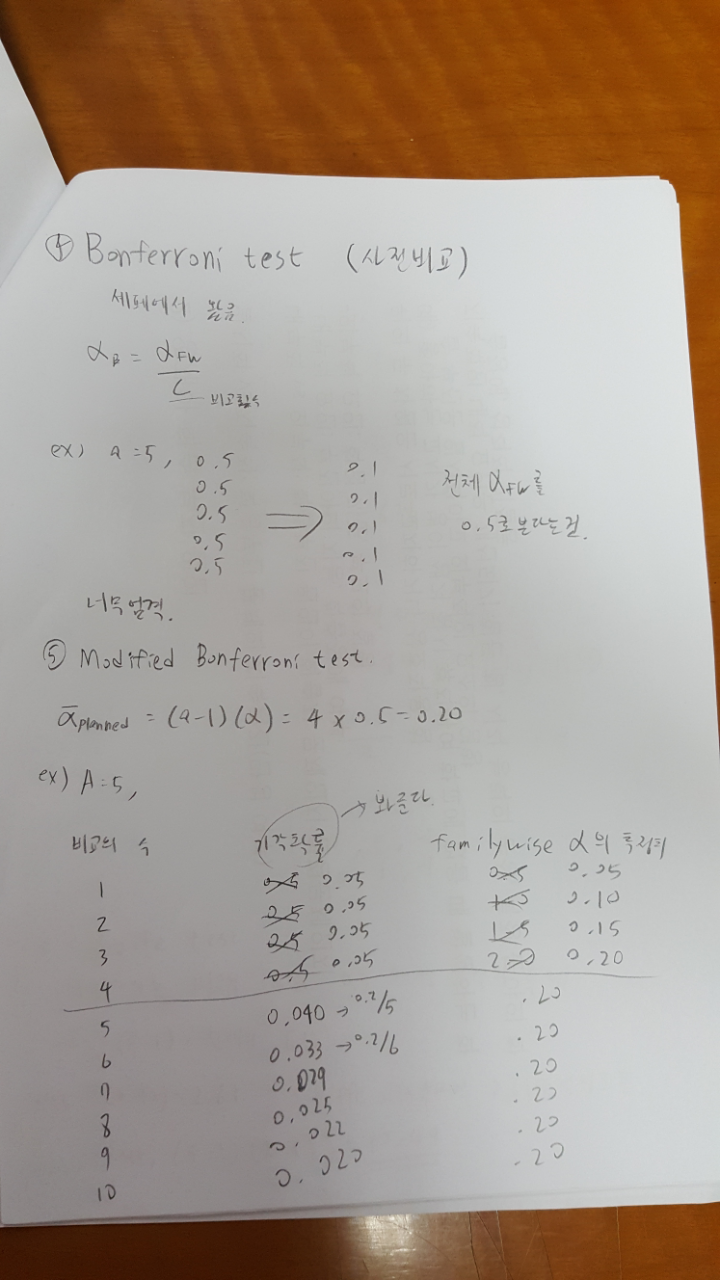 ④ Bonferroni test (사전비교)
세페에서 높음.
α_B = α_FW / C 비교횟수
ex) a=5, 0.5 0.1
0.5 0.1
0.5 ⇒ 0.1
0.5 0.1
0.5 0.1
전체 α_FW를
0.5로 본다는것.
너무엄격.
⑤ Modified Bonferroni test.
α̅planned = (a-1)(α) = 4 x 0.5 = 0.20
ex) A=5,
비교의 수 기각확률 → familywise α의
1 0.5 0.05 0.5 0.05
2 0.5 0.05 1.0 0.10
3 0.5 0.05 1.5 0.15
4 0.5 0.05 2.0 0.20
5 0.040 → 0.2/5 .20
6 0.033 → 0.2/6 .20
7 0.029 .20
8 0.025 .20
9 0.022 .20
10 0.020 .20